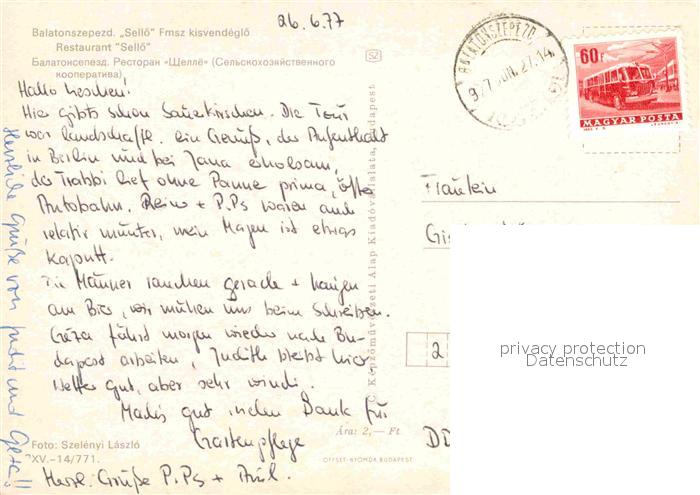 26.6.77
Balatonszepezd. „Sellő" Fmsz kisvendéglő
Restaurant "Sellő"
Балатонсепезд. Ресторан «Щеллё» (Сельскохозяйственного
кооператива)
Hallo
Hier gibts schon Sauerkirschen. Die Tour
war landschaftl. ein Genuß, der Aufenthalt
in Berlin und bei Jana erholsam,
der Trabbi lief ohne Panne prima, öfter
Autobahn. + P.Ps waren auch
relativ munter, mein Magen ist etwas
kaputt.
Die Männer rauchen gerade + hängen
am Bier, wir mühen uns beim Schreiben.
Géza fährt morgen wieder nach Bu-
dapest arbeiten, Judith bleibt hier
Wetter gut, aber sehr windi.
Machs gut vielen Dank für
Gartenpflege
Herzl. Grüße P.Ps +
Herzliche Grüße von Judit und Géza!!
Foto: Szelényi László
XV.-14/771.
SZ
C Képzőművészeti Alap Kiadóvállalata, Budapest
Ára: 2,— Ft
OFFSET-NYOMDA BUDAPEST
BALATONSZEPEZD
60f
MAGYAR POSTA
Fräulein
2
DD
privacy protection
Datenschutz